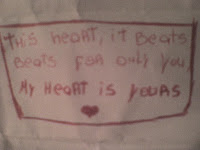 THIS HEART, it BEATS
BEATS FOR ONLY YOU
MY HEART is YOURS